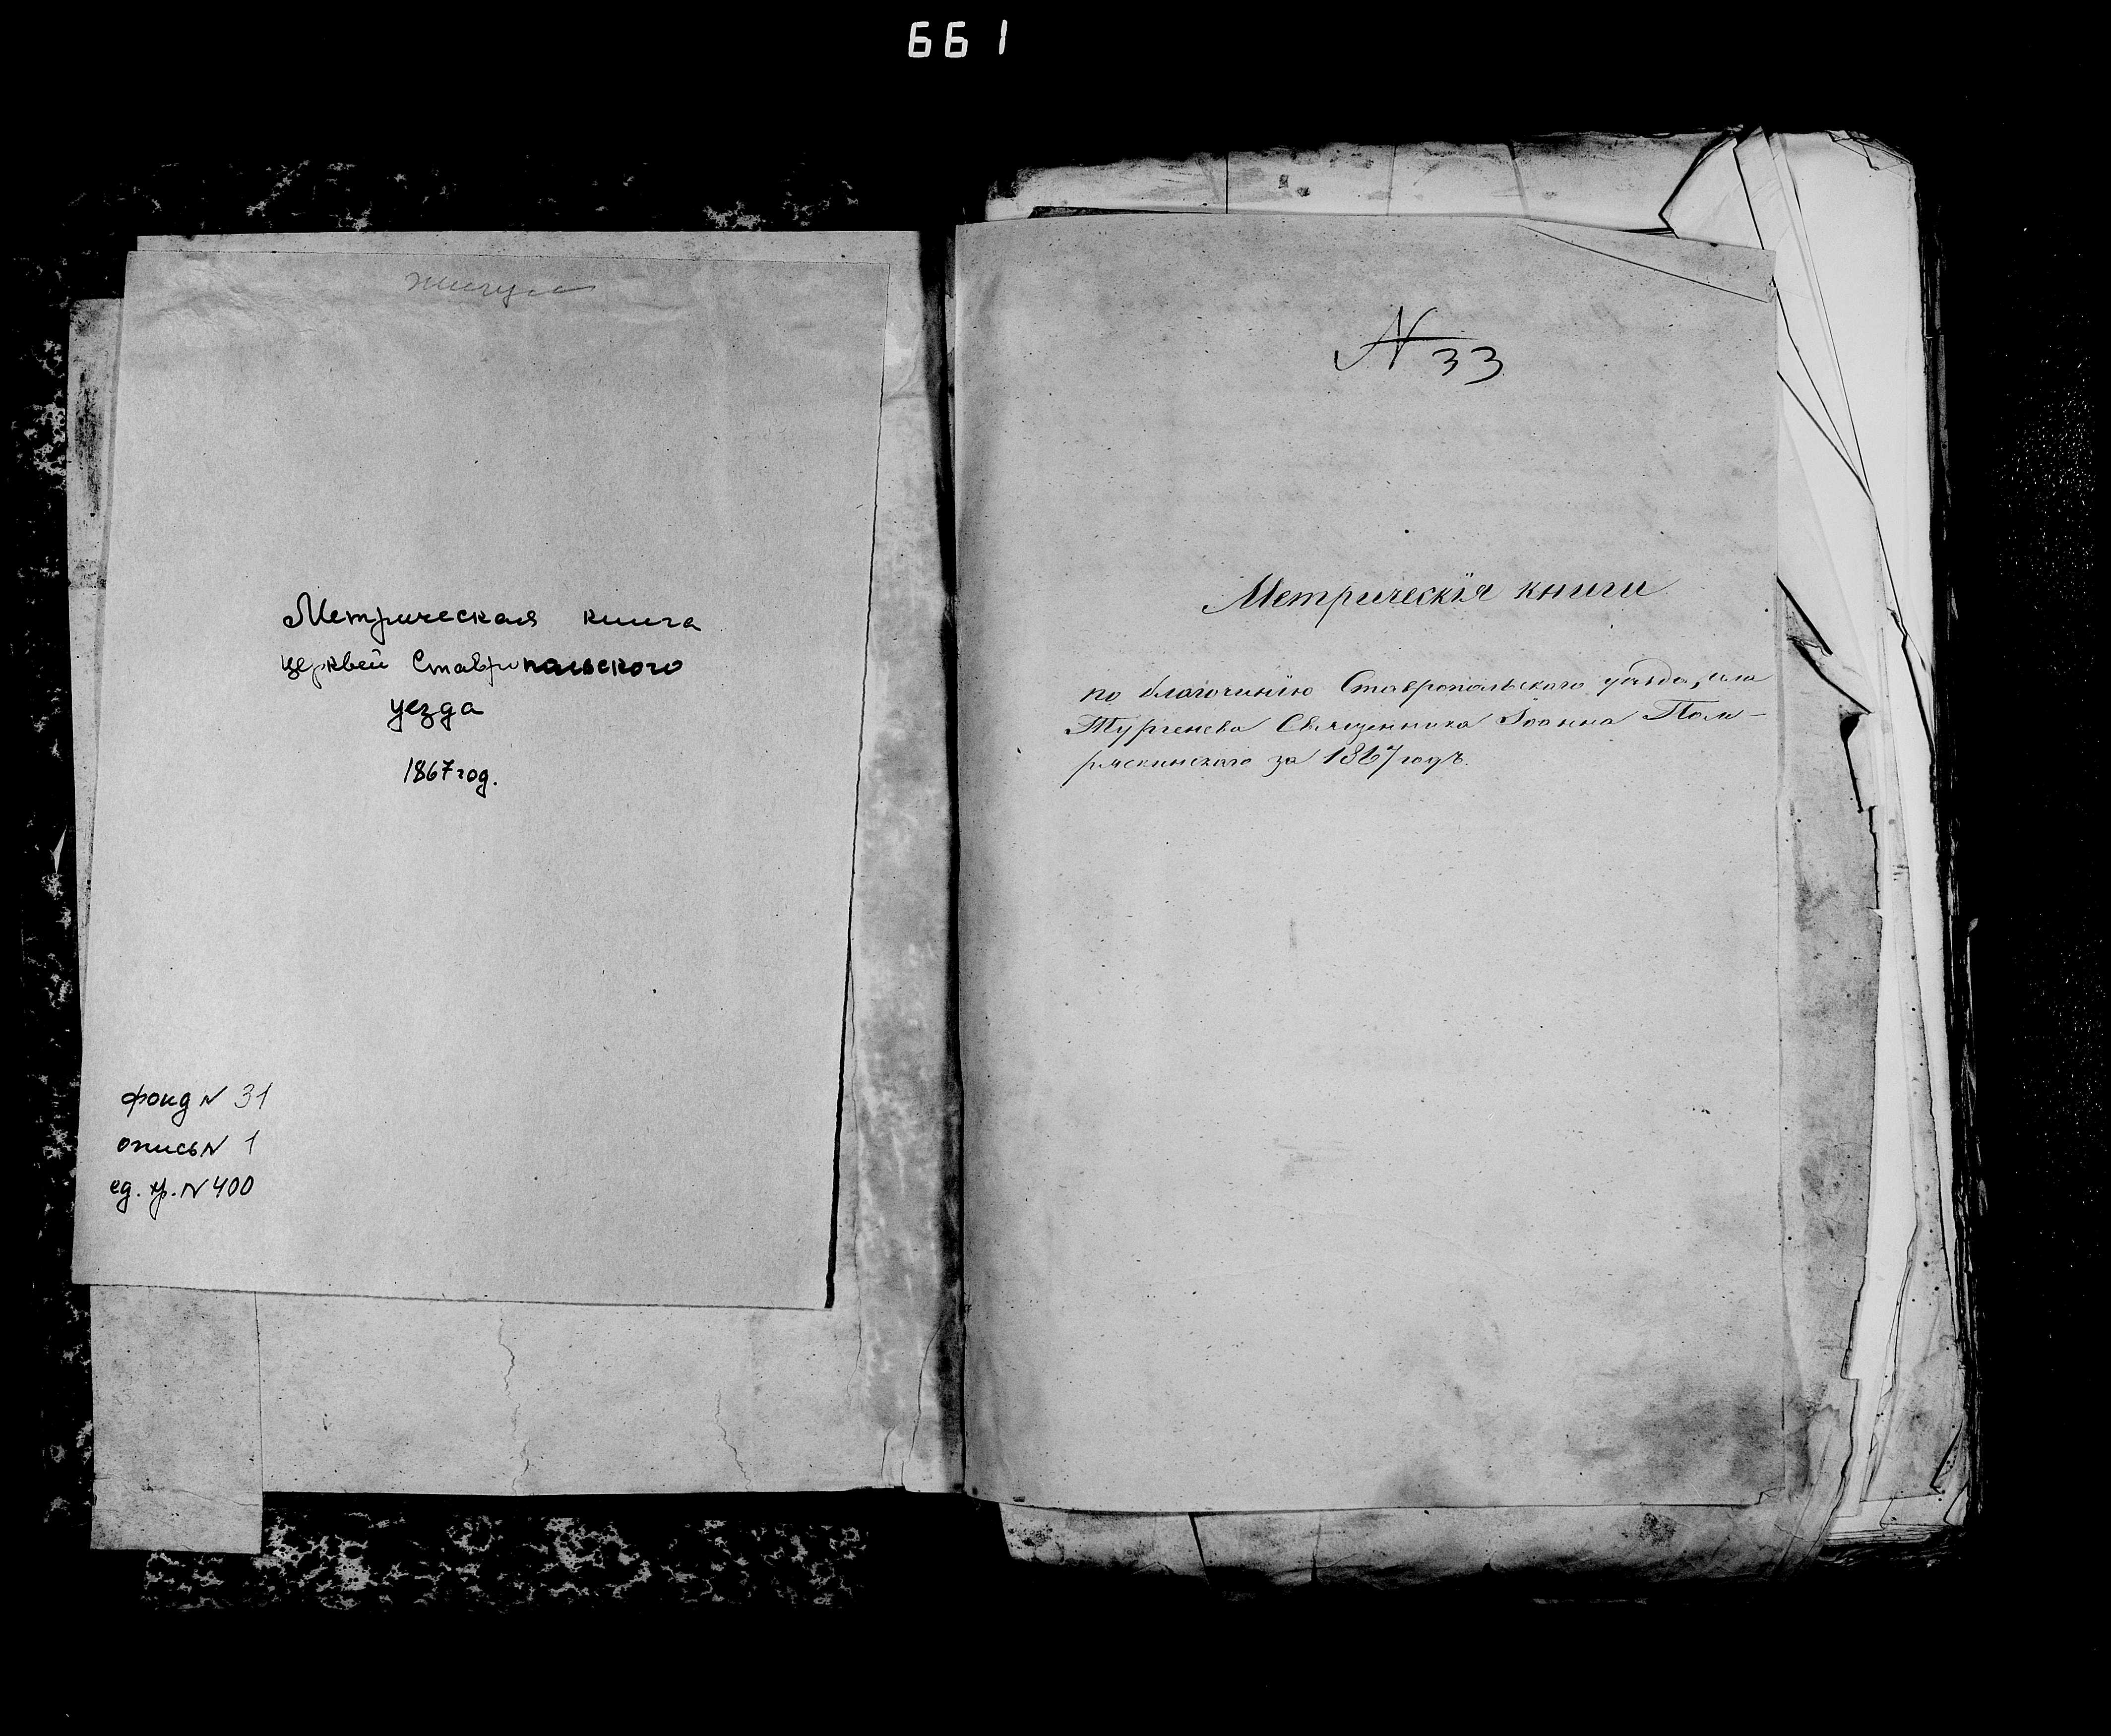 661
Метрическая книга
церквей Ставропольского
уезда
1867 год.
фонд N 31
опись N 1
ед. хр. N 400
N 33
Метрическія книги
по благочинію Ставропольскаго уѣзда, села
Тургенева Священника Іоанна
за 1867 годъ.